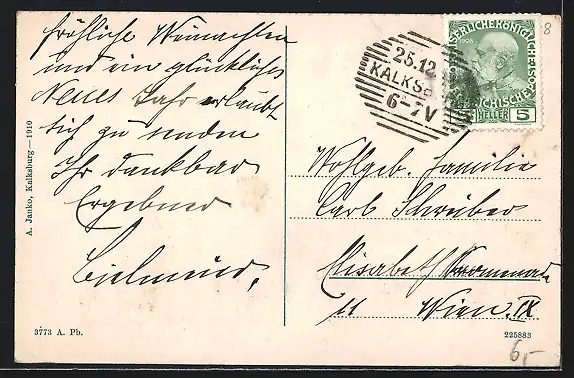 fröhliche Weinachten
und ein glückliches
Neues Jahr erlaubt
sich zu senden
Ihr dankbar
Ergebner
A. Janko, Kalksburg—1910
3773 A. Pb.
25.12
KALKSB
6-7V
KAISERLICHE KÖNIGLICHE ÖS
REICHISCHE
HELLER 5
8
Wohlgeb. Familie
Carl Schreiber
Elisabeth
11 Wien. IX
225883
6,-